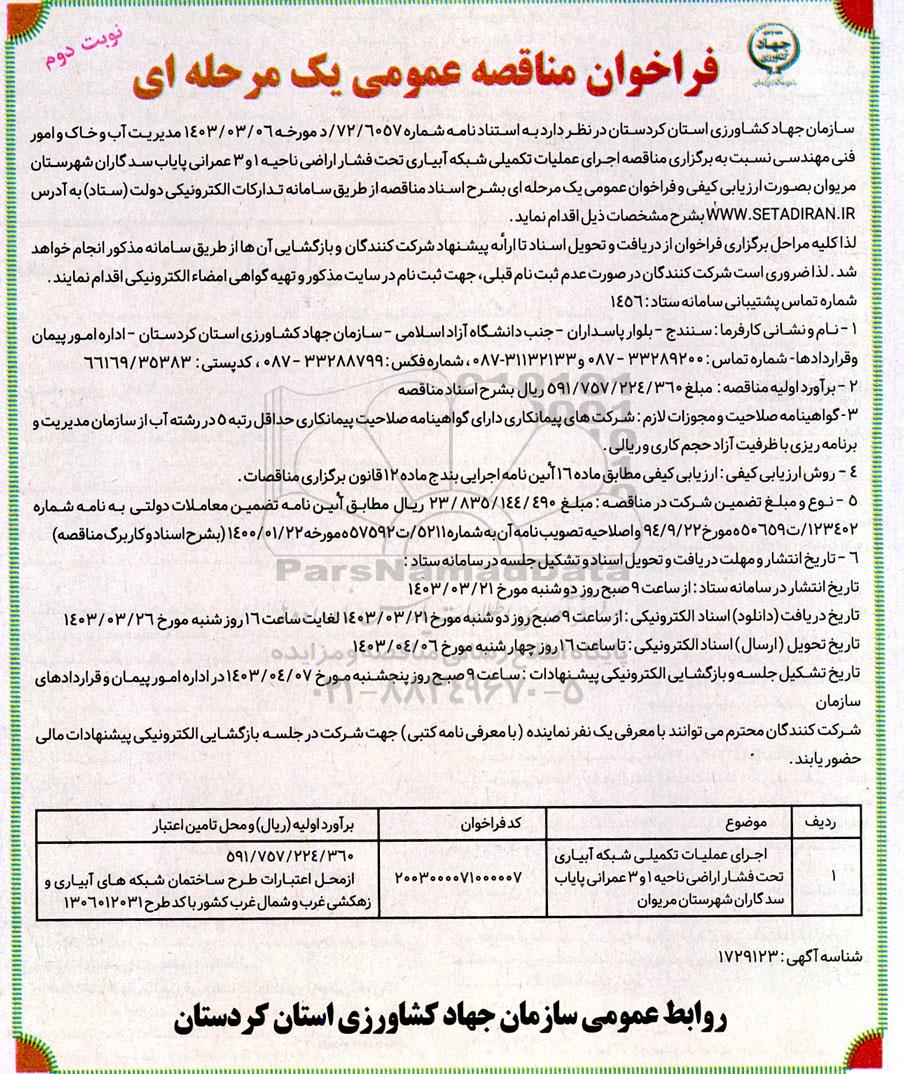 نوبت دوم
جهاد کشاورزی
فراخوان مناقصه عمومی یک مرحله ای
سازمان جهاد کشاورزی استان کردستان در نظر دارد به استناد نامه شماره ۷۲/۶۰۵۷/د مورخه ۱۴۰۳/۰۳/۰۶ مدیریت آب و خاک و امور
فنی مهندسی نسبت به برگزاری مناقصه اجرای عملیات تکمیلی شبکه آبیاری تحت فشار اراضی ناحیه ۱ و ۳ عمرانی پایاب سد گاران شهرستان
مریوان بصورت ارزیابی کیفی و فراخوان عمومی یک مرحله ای بشرح اسناد مناقصه از طریق سامانه تدارکات الکترونیکی دولت (ستاد) به آدرس
WWW.SETADIRAN.IR بشرح مشخصات ذیل اقدام نماید .
لذا کلیه مراحل برگزاری فراخوان از دریافت و تحویل اسناد تا ارأئه پیشنهاد شرکت کنندگان و بازگشایی آن ها از طریق سامانه مذکور انجام خواهد
شد . لذا ضروری است شرکت کنندگان در صورت عدم ثبت نام قبلی ، جهت ثبت نام در سایت مذکور و تهیه گواهی امضاء الکترونیکی اقدام نمایند .
شماره تماس پشتیبانی سامانه ستاد : ۱۴۵۶
۱ - نام و نشانی کارفرما : سنندج - بلوار پاسداران - جنب دانشگاه آزاد اسلامی - سازمان جهاد کشاورزی استان کردستان - اداره امور پیمان
وقراردادها- شماره تماس : ۳۳۲۸۹۲۰۰ - ۰۸۷ و ۳۱۱۳۲۱۳۳-۰۸۷ ، شماره فکس : ۳۳۲۸۸۷۹۹ - ۰۸۷ ، کدپستی : ۶۶۱۶۹/۳۵۳۸۳
۲ - برآورد اولیه مناقصه : مبلغ ۵۹۱/۷۵۷/۲۲۴/۳۶۰ ریال بشرح اسناد مناقصه
۳- گواهینامه صلاحیت و مجوزات لازم : شرکت های پیمانکاری دارای گواهینامه صلاحیت پیمانکاری حداقل رتبه ۵ در رشته آب از سازمان مدیریت و
برنامه ریزی با ظرفیت آزاد حجم کاری و ریالی .
۴ - روش ارزیابی کیفی : ارزیابی کیفی مطابق ماده ۱۶ آئین نامه اجرایی بند ج ماده ۱۲ قانون برگزاری مناقصات .
۵ - نوع و مبلغ تضمین شرکت در مناقصه : مبلغ ۲۳/۸۳۵/۱۴۴/۴۹۰ ریال مطابق آئین نامه تضمین معاملات دولتی به نامه شماره
۱۲۳۴۰۲/ت۵۰۶۵۹ه مورخ ۹۴/۹/۲۲ و اصلاحیه تصویب نامه آن به شماره ۵۲۱۱/ت۵۷۵۹۲ه مورخه ۱۴۰۰/۰۱/۲۲ (بشرح اسناد و کاربرگ مناقصه)
۶ - تاریخ انتشار و مهلت دریافت و تحویل اسناد و تشکیل جلسه در سامانه ستاد :
تاریخ انتشار در سامانه ستاد : از ساعت ۹ صبح روز دوشنبه مورخ ۱۴۰۳/۰۳/۲۱
تاریخ دریافت (دانلود) اسناد الکترونیکی : از ساعت ۹ صبح روز دوشنبه مورخ ۱۴۰۳/۰۳/۲۱ لغایت ساعت ۱۶ روز شنبه مورخ ۱۴۰۳/۰۳/۲۶
تاریخ تحویل (ارسال) اسناد الکترونیکی : تا ساعت ۱۶ روز چهارشنبه مورخ ۱۴۰۳/۰۴/۰۶
تاریخ تشکیل جلسه و بازگشایی الکترونیکی پیشنهادات : ساعت ۹ صبح روز پنجشنبه مورخ ۱۴۰۳/۰۴/۰۷ در اداره امور پیمان و قراردادهای
سازمان
شرکت کنندگان محترم می توانند با معرفی یک نفر نماینده ( با معرفی نامه کتبی ) جهت شرکت در جلسه بازگشایی الکترونیکی پیشنهادات مالی
حضور یابند .
ردیف موضوع کد فراخوان برآورد اولیه (ریال) و محل تامین اعتبار
۱
اجرای عملیات تکمیلی شبکه آبیاری
تحت فشار اراضی ناحیه ۱ و ۳ عمرانی پایاب
سد گاران شهرستان مریوان
۲۰۰۳۰۰۰۰۷۱۰۰۰۰۰۷
۵۹۱/۷۵۷/۲۲۴/۳۶۰
از محل اعتبارات طرح ساختمان شبکه های آبیاری و
زهکشی غرب و شمال غرب کشور با کد طرح ۱۳۰۶۰۱۲۰۳۱
شناسه آگهی : ۱۷۲۹۱۲۳
روابط عمومی سازمان جهاد کشاورزی استان کردستان
ParsNamadData
پایگاه اطلاع رسانی مناقصه و مزایده
۰۲۱-۸۸۳۴۹۶۷۰-۵